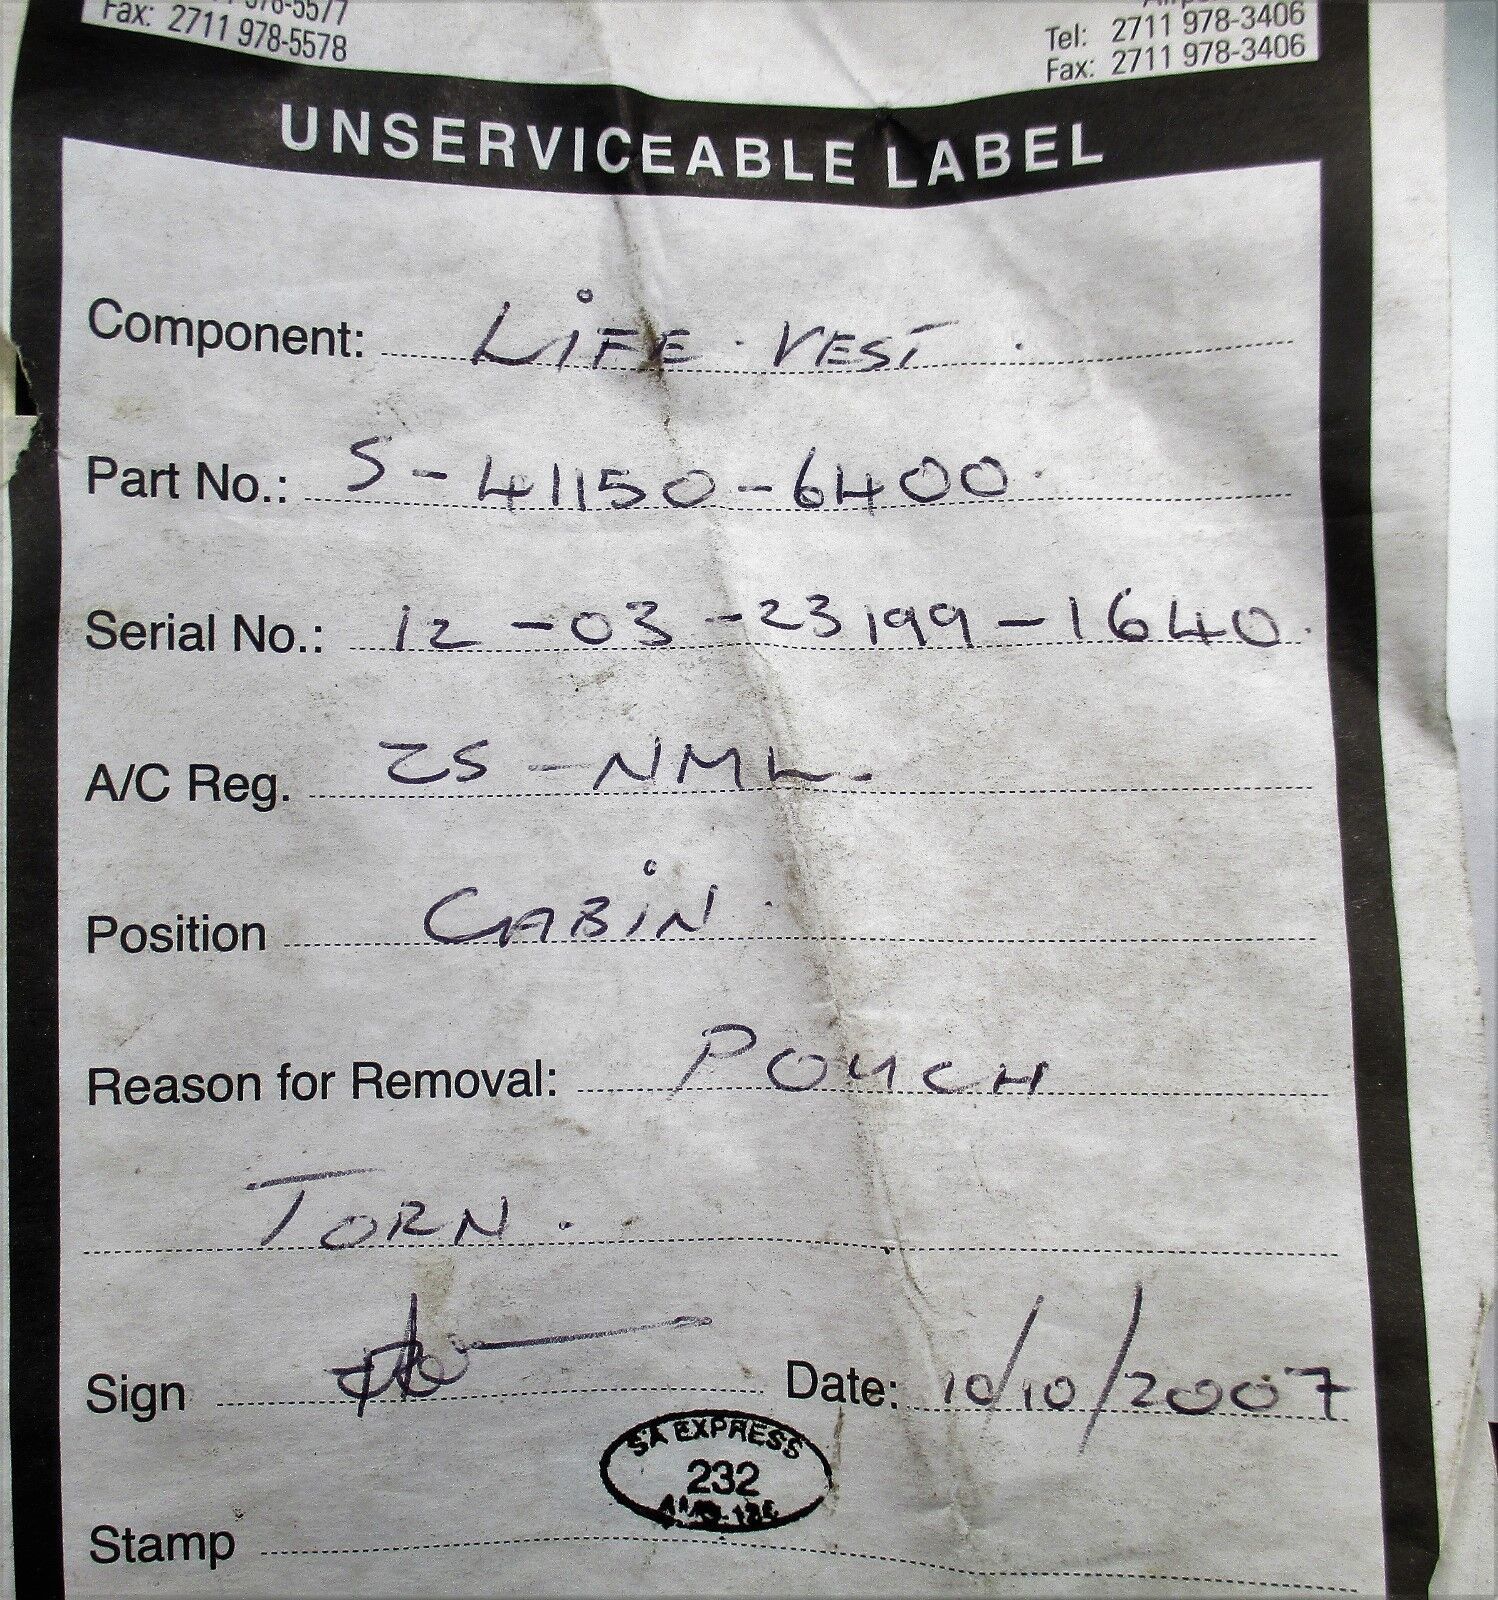 Fax: 2711 978-5578
Tel: 2711 978-3406
Fax: 2711 978-3406
UNSERVICEABLE LABEL
Component: LiFE. VEST.
Part No.: S-41150-6400.
Serial No.: 12-03-23199-1640.
A/C Reg. ZS-NML.
Position CABiN.
Reason for Removal: POUCH
TORN.
Sign Date: 10/10/2007
SA EXPRESS
232
Stamp